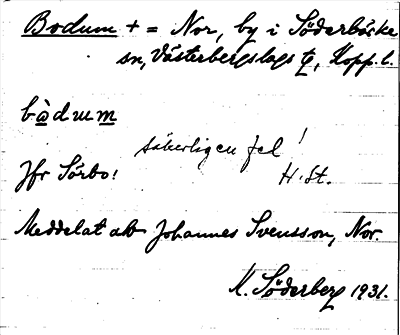 Bodum + = Nor, by i Söderbärke
sn, Västerbergslags tg, Kopp. l.
bòdum
säkerligen fel!
Jfr Sörbo!
H. St.
Meddelat av Johannes Svensson, Nor.
M. Söderberg 1931.